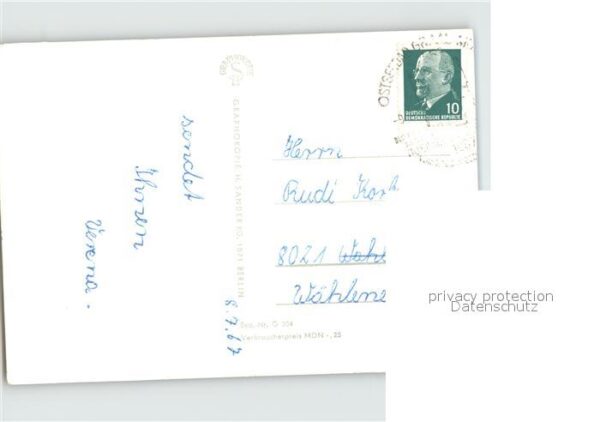 sendet
Ihnen
Verena.
8.7.67
GRAPHOKOPIE H. SANDER KG, 1071 BERLIN
Best.-Nr. G 304
Verbraucherpreis MDN -,25
OSTSEEBAD
10
DEUTSCHE
DEMOKRATISCHE REPUBLIK
Herrn
Rudi
8021
privacy protection
Datenschutz